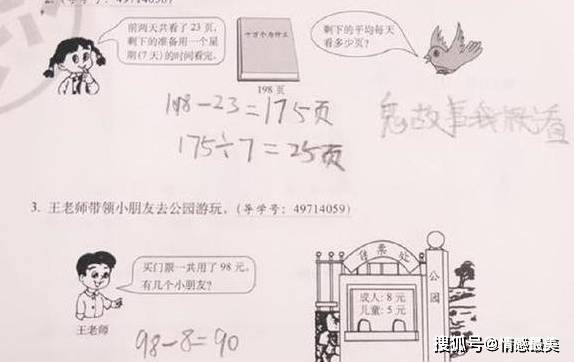 前两天共看了 23 页,
剩下的准备用一个星
期(7 天)的时间看完。
十万个为什么
剩下的平均每天
看多少页?
198 页
198-23=175页
175÷7=25页
鬼故事我没看
3. 王老师带领小朋友去公园游玩。(导学号:49714059)
买门票一共用了 98 元。
有几个小朋友?
王老师
售票处
公园
成人:8 元
儿童:5 元
98-8=90
搜狐号@情感最美